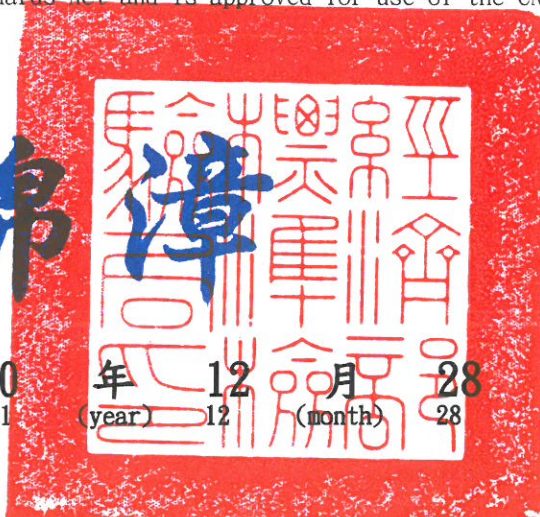 and is approved for use of the
錦漳
經濟部
標準檢
驗局印
0 年 12 月 28
1 (year) 12 (month) 28